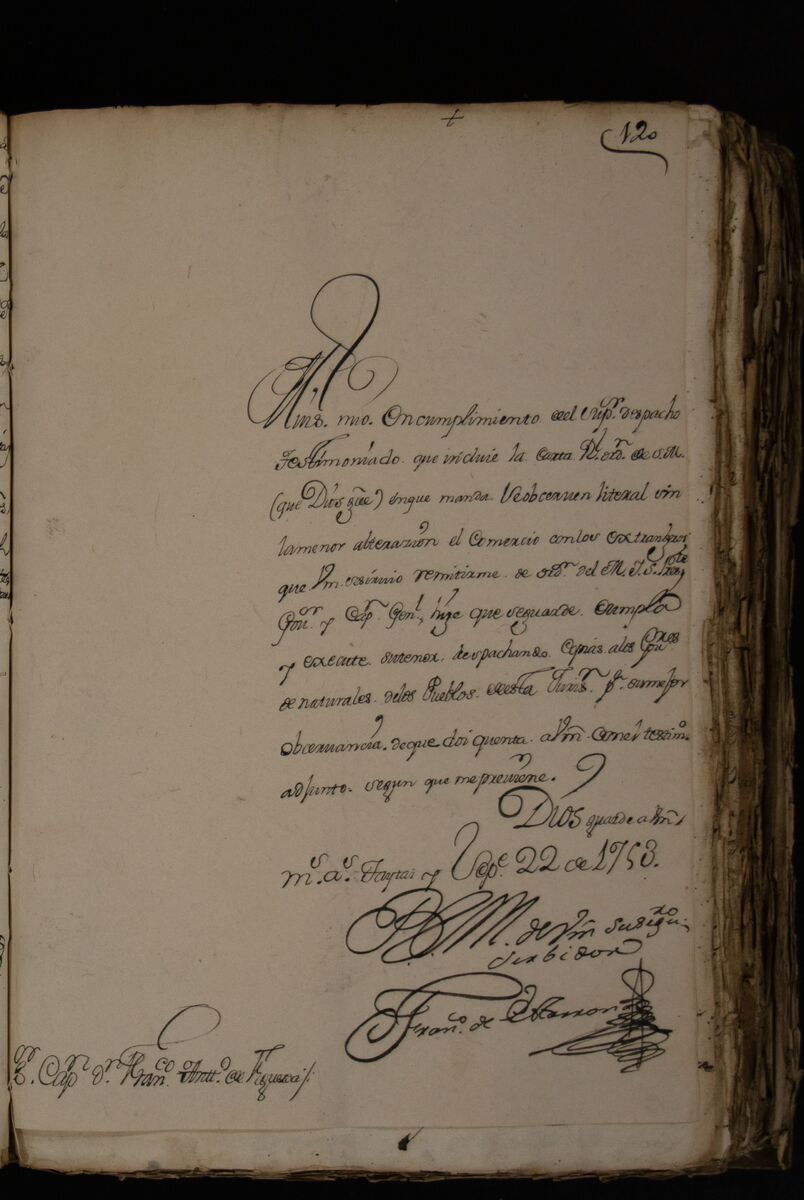 +
120
Muis. mio. En cumplimiento del Supor. despacho
Testimoniado. que incluie la Carta Rl. ordn. de S.M.
(que Dios gue) en que manda Se obseruen literal sin
la menor alterazion el Comercio con los extrangeros
que Vm. se siruio remitirme. de ordn. del M. I. S. Presdte
Gour. y Capn. Genl., hize que se guarde. Cumpla
y execute. su tenor. despachando. Copias. a los Goures
de naturales. de los Pueblos. de esta Jurisn. pa. su mejor
obseruancia. de que doi quenta. a Vm. Con el testimo.
adjunto. segun que me preuiene.
Dios guarde a Vm.
ms. as. y Sepe. 22 de 1753.
B L M. de Vm su segu-ro
Serbidor
Franco. de
Sr. Capn. Dn. Franco. Antto. de Figueroa